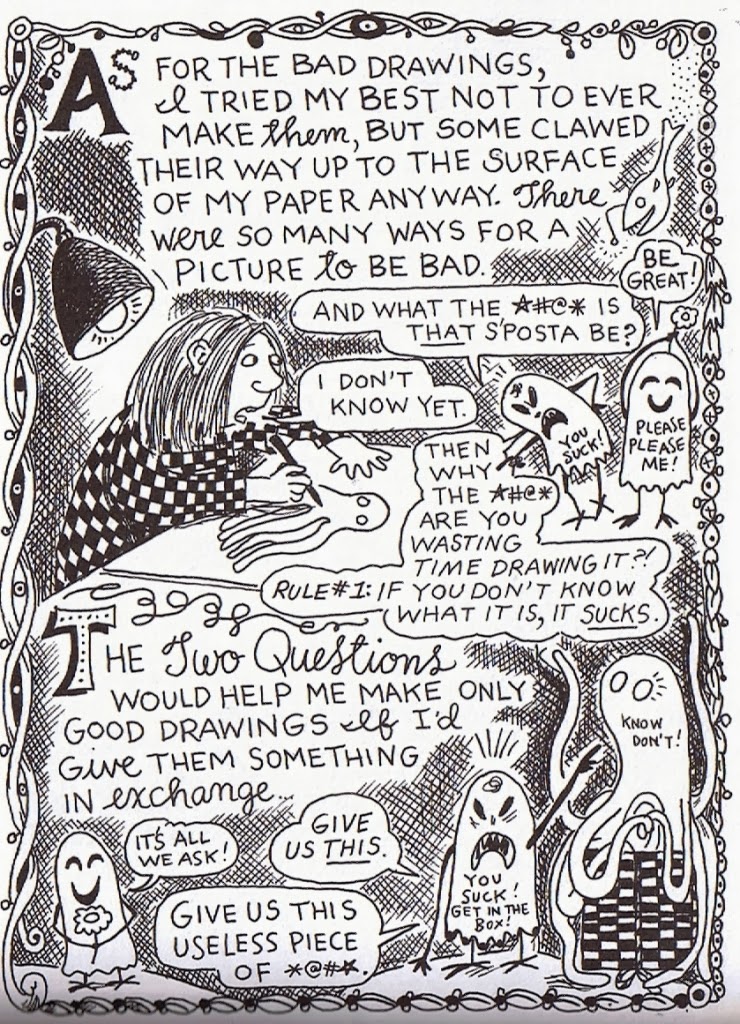 As FOR THE BAD DRAWINGS,
I TRIED MY BEST NOT TO EVER
MAKE them, BUT SOME CLAWED
THEIR WAY UP TO THE SURFACE
OF MY PAPER ANYWAY. There
were SO MANY WAYS FOR A
PICTURE to BE BAD.
BE
GREAT!
AND WHAT THE *#@* IS
THAT S'POSTA BE?
I DON'T
KNOW YET.
YOU
SUCK!
PLEASE
PLEASE
ME!
THEN
WHY
THE *#@*
ARE YOU
WASTING
TIME DRAWING IT?!
RULE #1: IF YOU DON'T KNOW
WHAT IT IS, IT SUCKS.
THE Two Questions
WOULD HELP ME MAKE ONLY
GOOD DRAWINGS If I'd
Give THEM SOMETHING
IN exchange...
KNOW
DON'T!
IT'S ALL
WE ASK!
GIVE
US THIS.
YOU
SUCK!
GET IN THE
BOX!
GIVE US THIS
USELESS PIECE
OF *@#*.